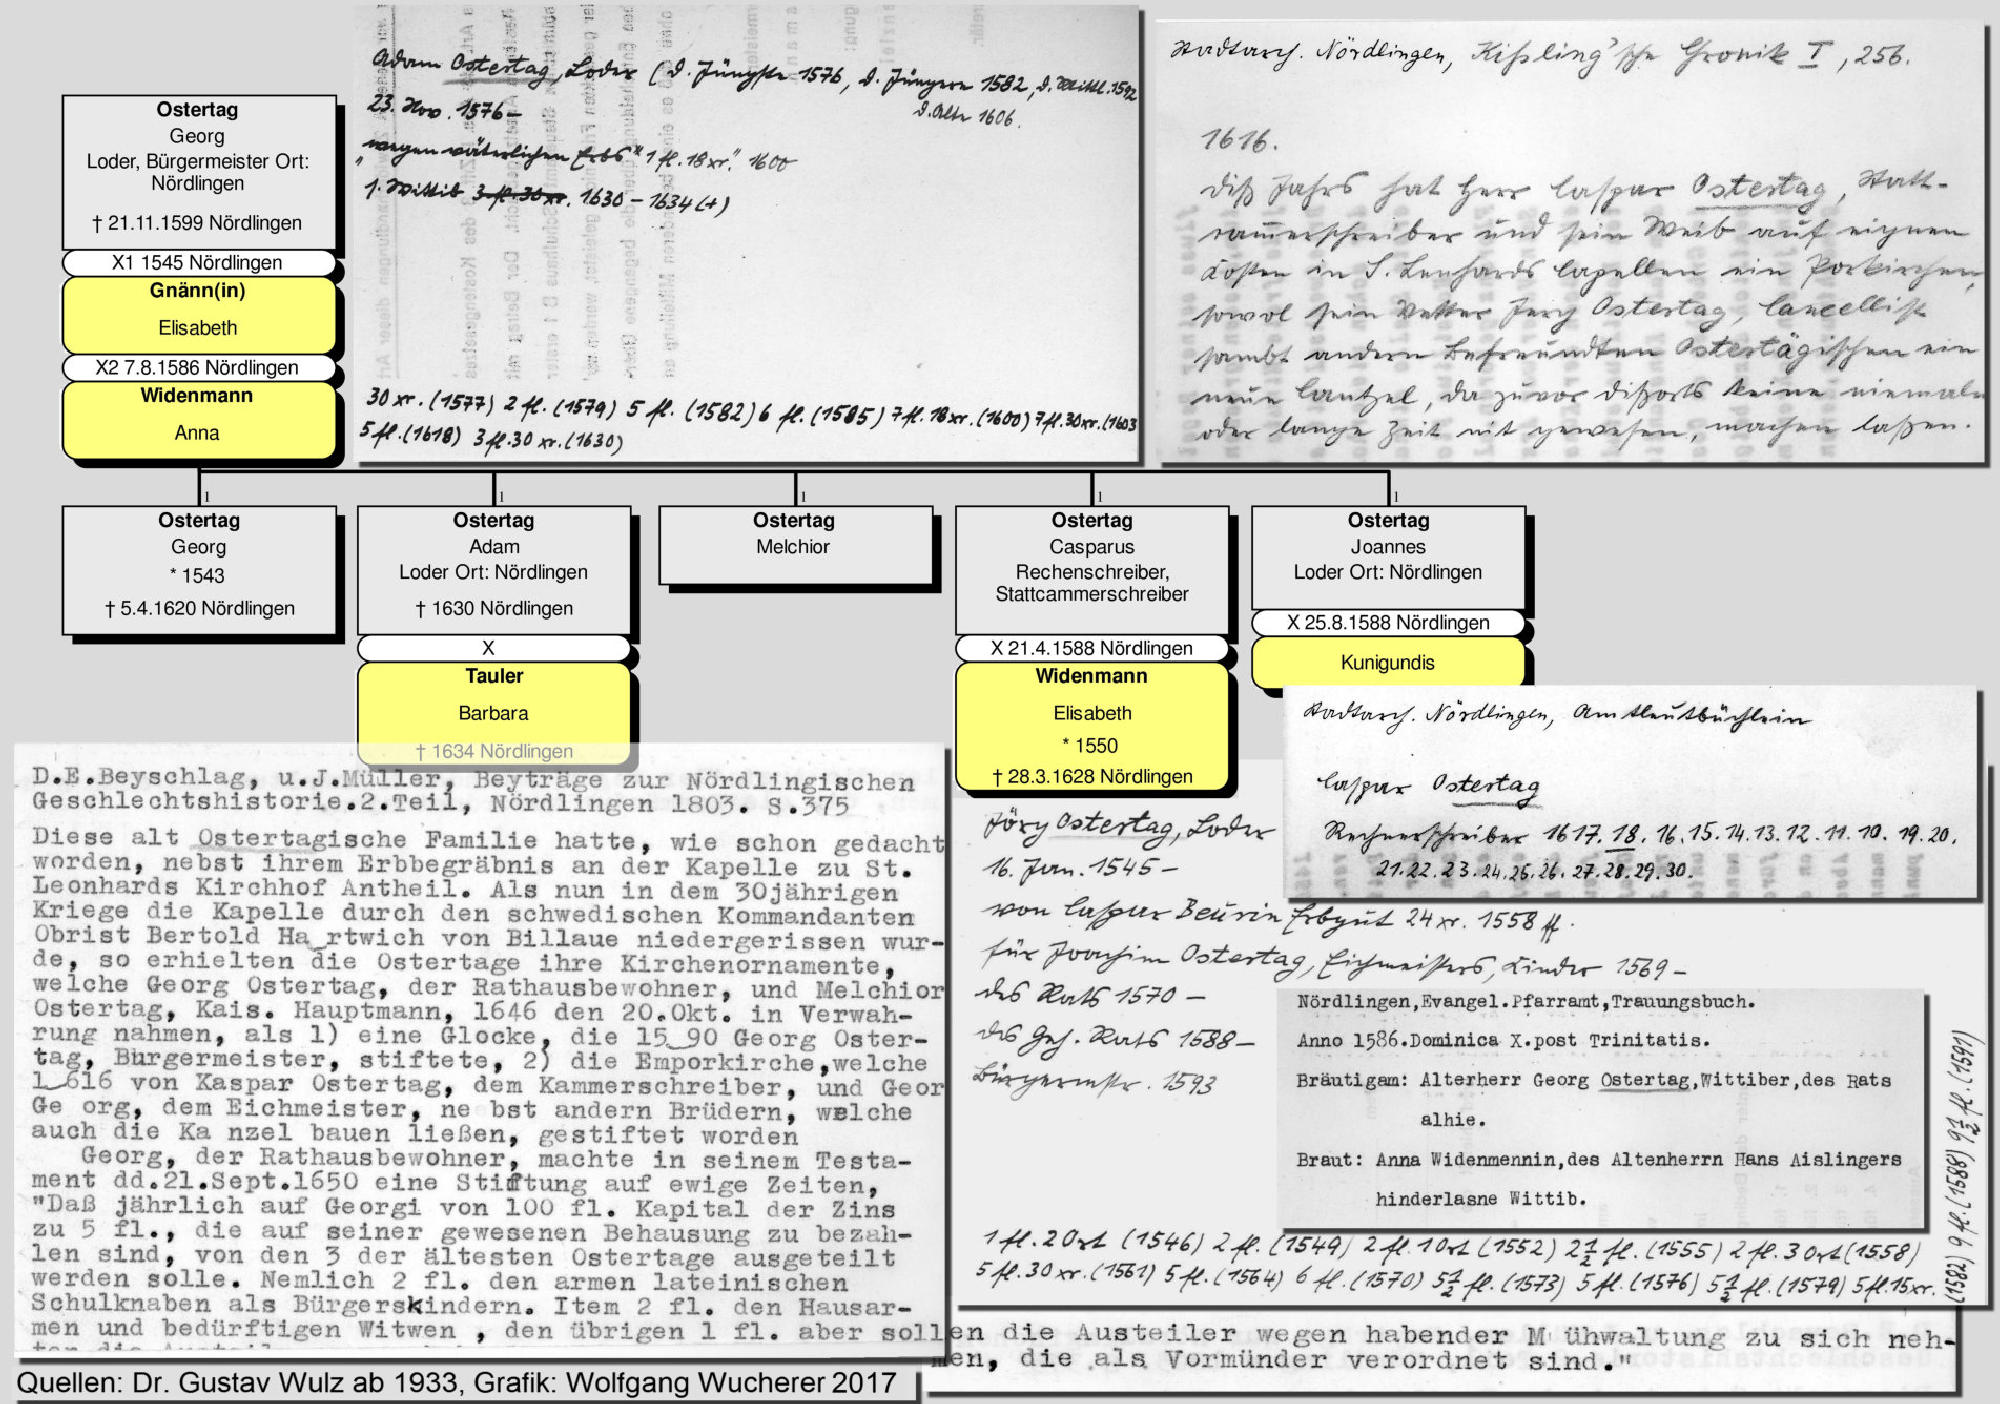 Ostertag
Georg
Loder, Bürgermeister Ort:
Nördlingen
† 21.11.1599 Nördlingen
X1 1545 Nördlingen
Gnänn(in)
Elisabeth
X2 7.8.1586 Nördlingen
Widenmann
Anna
Adam Ostertag, Loder (d. Jüngste 1576, d. Jüngere 1582, d. Mittl. 1592
d. Alte 1606.
23. Nov. 1576 –
"wegen väterlichen Erbs" 1 fl. 18 xr." 1600
1. Wittib 3 fl 30 xr. 1630 – 1634 (+)
30 xr. (1577) 2 fl. (1579) 5 fl. (1582) 6 fl. (1585) 7 fl. 18 xr. (1600) 7 fl. 30 xr. (1603
5 fl. (1618) 3 fl. 30 xr. (1630)
Stadtarch. Nördlingen, Kißling'sche Chronik I, 256.
1616.
Diß Jahrs hat Herr Caspar Ostertag, Statt-
cam̅erschreiber und sein Weib auf eignen
Kosten in S. Lenhards Capellen ein Porkirchen,
sowol sein Vetter Jerg Ostertag, Cancellist
sambt andern Befreundten Ostertägischen ein
neue Cantzel, da zuvor dißorts keine niemaln
oder lange Zeit nit gewesen, machen laßen.
1
1
1
1
1
Ostertag
Georg
* 1543
† 5.4.1620 Nördlingen
Ostertag
Adam
Loder Ort: Nördlingen
† 1630 Nördlingen
X
Tauler
Barbara
† 1634 Nördlingen
Ostertag
Melchior
Ostertag
Casparus
Rechenschreiber,
Stattcammerschreiber
X 21.4.1588 Nördlingen
Widenmann
Elisabeth
* 1550
† 28.3.1628 Nördlingen
Ostertag
Joannes
Loder Ort: Nördlingen
X 25.8.1588 Nördlingen
Kunigundis
Stadtarch. Nördlingen, Amtleutbüchlein
Caspar Ostertag
Rechnerschreiber 1617. 18. 16. 15. 14. 13. 12. 11. 10. 19. 20.
21. 22. 23. 24. 25. 26. 27. 28. 29. 30.
D.E.Beyschlag, u.J.Müller, Beyträge zur Nördlingischen
Geschlechtshistorie.2.Teil, Nördlingen 1803. S.375
Diese alt Ostertagische Familie hatte, wie schon gedacht
worden, nebst ihrem Erbbegräbnis an der Kapelle zu St.
Leonhards Kirchhof Antheil. Als nun in dem 30jährigen
Kriege die Kapelle durch den schwedischen Kommandanten
Obrist Bertold Ha rtwich von Billaue niedergerissen wur-
de, so erhielten die Ostertage ihre Kirchenornamente,
welche Georg Ostertag, der Rathausbewohner, und Melchior
Ostertag, Kais. Hauptmann, 1646 den 20.Okt. in Verwah-
rung nahmen, als 1) eine Glocke, die 15 90 Georg Oster-
tag, Bürgermeister, stiftete, 2) die Emporkirche,welche
1 616 von Kaspar Ostertag, dem Kammerschreiber, und Geor
Ge org, dem Eichmeister, ne bst andern Brüdern, welche
auch die Ka nzel bauen ließen, gestiftet worden
Georg, der Rathausbewohner, machte in seinem Testa-
ment dd.21.Sept.1650 eine Stiftung auf ewige Zeiten,
"Daß jährlich auf Georgi von 100 fl. Kapital der Zins
zu 5 fl., die auf seiner gewesenen Behausung zu bezah-
len sind, von den 3 der ältesten Ostertage ausgeteilt
werden solle. Nemlich 2 fl. den armen lateinischen
Schulknaben als Bürgerskindern. Item 2 fl. den Hausar-
men und bedürftigen Witwen , den übrigen 1 fl. aber sollen die Austeiler wegen habender M ühwaltung zu sich neh-
men, die als Vormünder verordnet sind."
Jörg Ostertag, Loder
16. Jan. 1545 –
von Caspar Beurin Erbgut 24 xr. 1558 ff.
für Joachim Ostertag, Eichmeisters, Kinder 1569 –
des Rats 1570 –
des Geh. Rats 1588 –
Bürgermstr. 1593
Nördlingen,Evangel.Pfarramt,Trauungsbuch.
Anno 1586.Dominica X.post Trinitatis.
Bräutigam: Alterherr Georg Ostertag,Wittiber,des Rats
alhie.
Braut: Anna Widenmennin,des Altenherrn Hans Aislingers
hinderlasne Wittib.
1 fl. 2 Ort (1546) 2 fl. (1549) 2 fl. 1 Ort (1552) 2½ fl. (1555) 2 fl. 3 Ort (1558)
5 fl. 30 xr. (1561) 5 fl. (1564) 6 fl. (1570) 5½ fl. (1573) 5 fl. (1576) 5½ fl. (1579) 5 fl. 15 xr.
(1582) 9 fl. (1588) 9½ fl. (1591)
Quellen: Dr. Gustav Wulz ab 1933, Grafik: Wolfgang Wucherer 2017